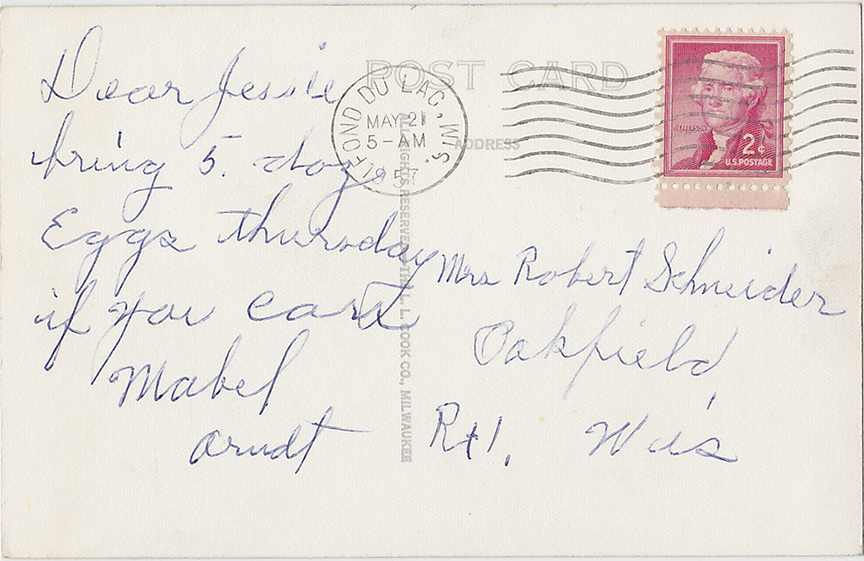 POST CARD
ADDRESS
FOND DU LAC, WIS.
MAY 21
5-AM
1957
JEFFERSON
2¢
U.S. POSTAGE
Dear Jessie
bring 5. doz
Eggs thursday
if you can
Mabel
arndt
ALL RIGHTS RESERVED, THE L. L. COOK CO., MILWAUKEE
Mrs Robert Schneider
Oakfield
Rt 1. Wis